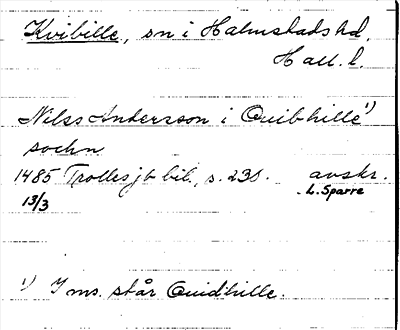 Kvibille, sn i Halmstads hd.
Hall. l.
Nilss Andersson i Quibhille¹⁾
sochn
1485 Trollesjb bil., s. 231. avskr.
13/3 L. Sparre
¹⁾ I ms. står Quidhille.